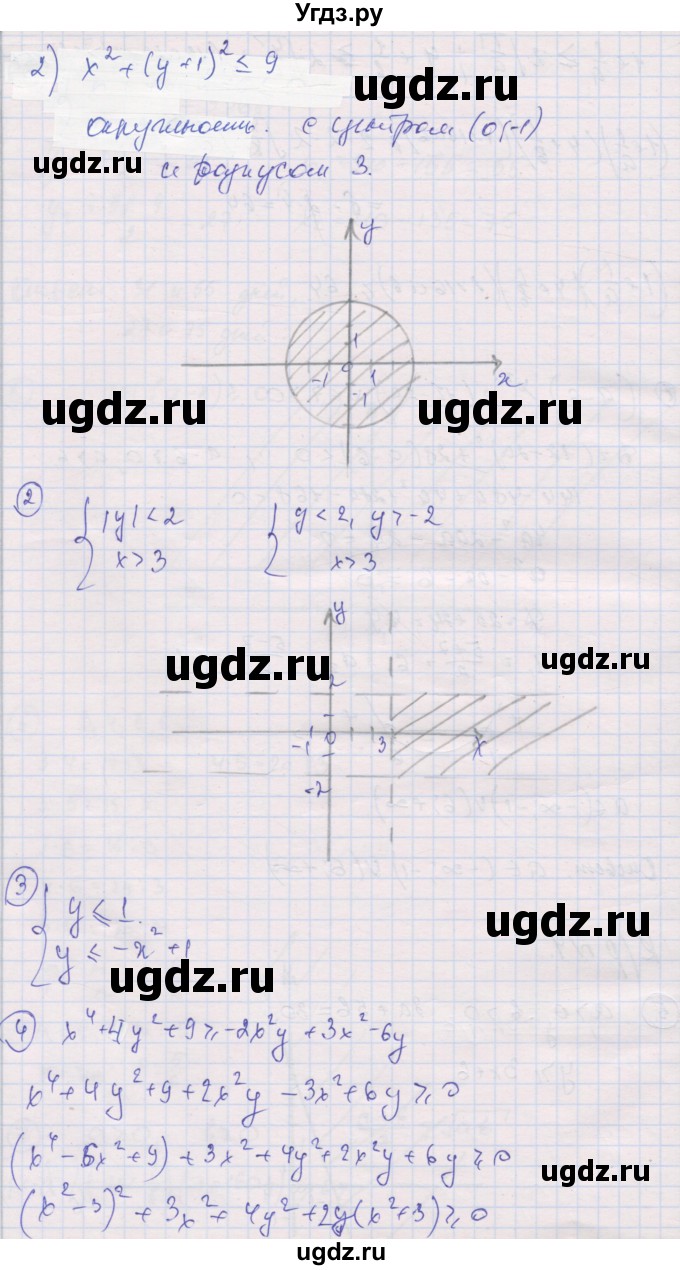 Угдз.ру
2) x² + (y+1)² ≤ 9
ugdz.ru
окружность. с центром (0;-1)
ugdz.ru
и радиусом 3.
y
1
-1 0 1 x
-1
ugdz.ru ugdz.ru
2
{ |y| < 2 { y < 2, y > -2
x > 3 x > 3
y
ugdz.ru ugdz.ru
2
-1 0 3 x
-2
3
{ y ≤ 1.
ugdz.ru
y ≤ -x² + 1
ugdz.ru
4 x⁴ + 4y² + 9 ≥ -2x²y + 3x² - 6y
x⁴ + 4y² + 9 + 2x²y - 3x² + 6y ≥ 0
(x⁴ - 6x² + 9) + 3x² + 4y² + 2x²y + 6y ≥ 0
ugdz.ru
(x² - 3)² + 3x² + 4y² + 2y(x² + 3) ≥ 0
ugdz.ru